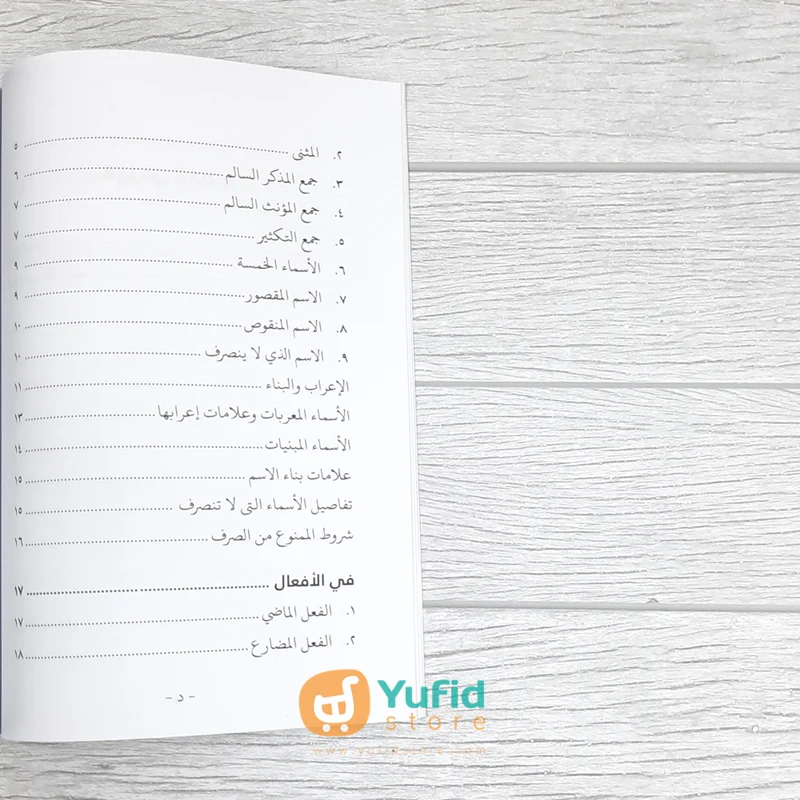 ٢. المثنى ........ ٥
٣. جمع المذكر السالم ........ ٦
٤. جمع المؤنث السالم ........ ٧
٥. جمع التكثير ........ ٧
٦. الأسماء الخمسة ........ ٩
٧. الاسم المقصور ........ ٩
٨. الاسم المنقوص ........ ١٠
٩. الاسم الذي لا ينصرف ........ ١٠
الإعراب والبناء ........ ١١
الأسماء المعربات وعلامات إعرابها ........ ١٣
الأسماء المبنيات ........ ١٤
علامات بناء الاسم ........ ١٥
تفاصيل الأسماء التى لا تنصرف ........ ١٥
شروط الممنوع من الصرف ........ ١٦
في الأفعال ........ ١٧
١. الفعل الماضي ........ ١٧
٢. الفعل المضارع ........ ١٨
- د -
Yufid
store
www.yufidstore.com